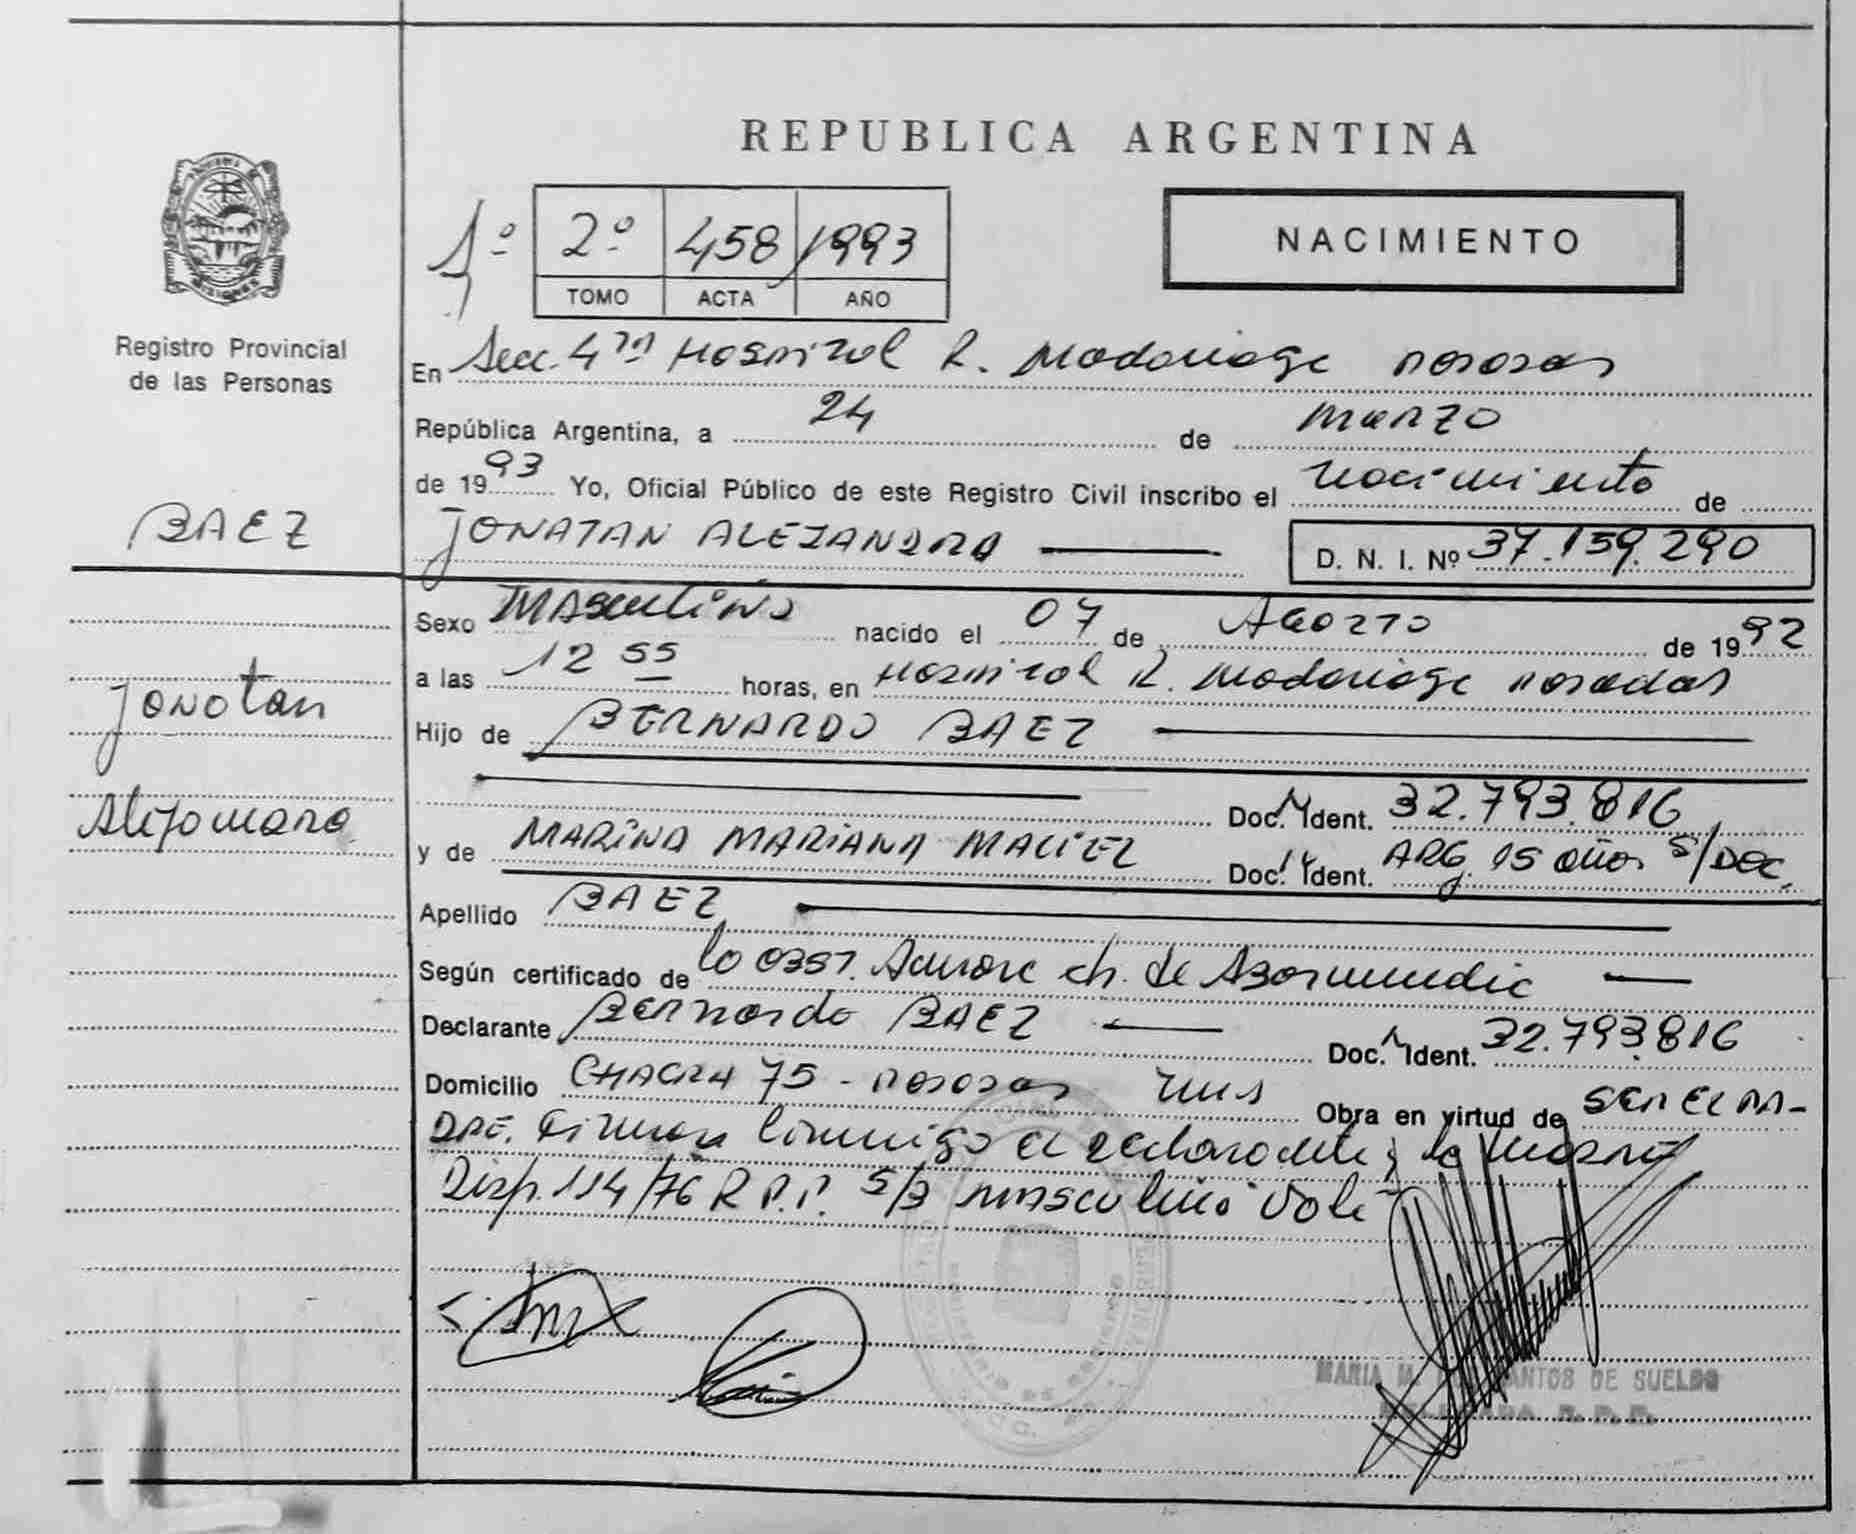 REPUBLICA ARGENTINA
MISIONES
Registro Provincial
de las Personas
1º 2º 458 1993
TOMO ACTA AÑO
NACIMIENTO
En Secc. 4ta Hospital R. Madariaga Posadas
República Argentina, a 24 de Marzo
de 1993 Yo, Oficial Público de este Registro Civil inscribo el nacimiento de
BAEZ
JONATAN ALEJANDRO
D. N. I. Nº 37.159.290
Sexo Masculino nacido el 07 de Agosto de 1992
a las 12 55 horas, en Hospital R. Madariaga Posadas
Jonatan
Alejandro
Hijo de BERNARDO BAEZ
Doc. Ident. 32.793.816
y de MARINA MARIANA MACIEL Doc. Ident. ARG. 15 años S/Doc.
Apellido BAEZ
Según certificado de la Obst. ch. de
Declarante Bernardo BAEZ Doc. Ident. 32.793.816
Domicilio CHACRA 75 - Posadas Mns Obra en virtud de SER EL PA-
DRE. Firman conmigo el declarante y la madre
Disp. 114/76 R.P.P. S/B masculino Vale
MARIA M. SANTOS DE SUELDO
DELEGADA R. P. P.